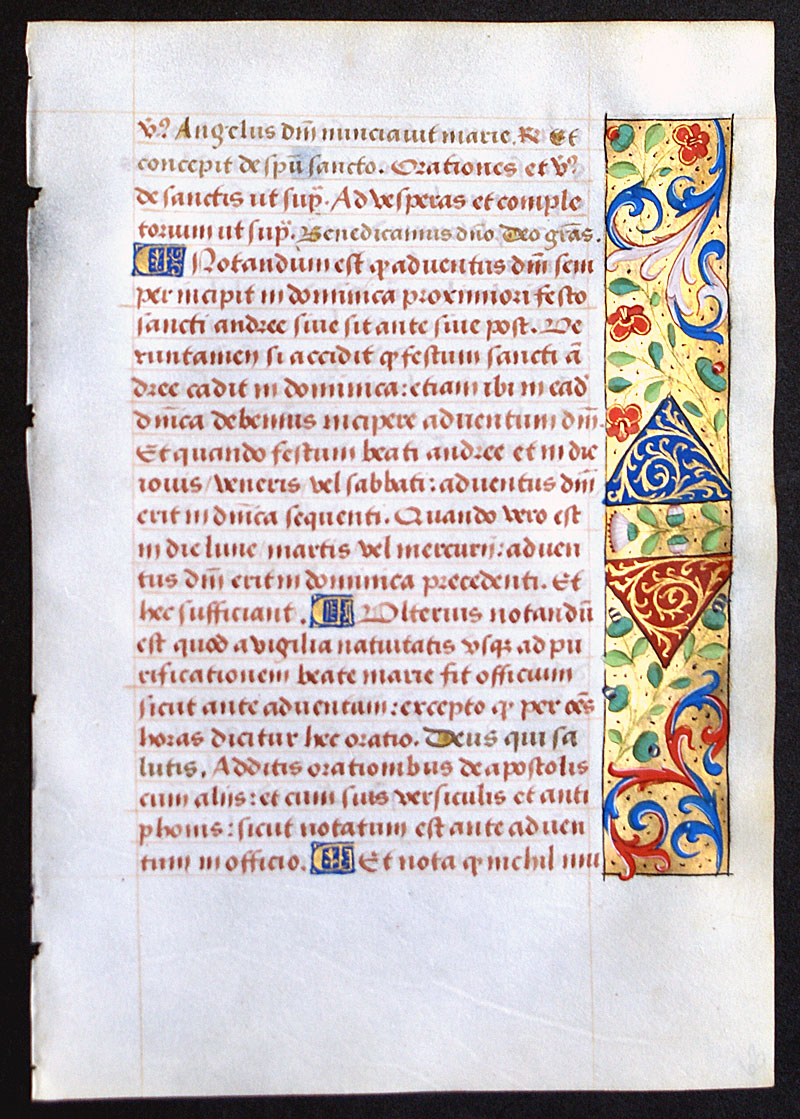 V̾ Angelus dñi nunciavit marie. R̾ Et
concepit de spũ sancto. Orationes et v̾
de sanctis ut sup̃. Ad vesperas et comple
torium ut sup̃. Benedicamus dño Deo grãs.
Notandum est ꝙ aduentus dñi sem
per incipit in dominica proximiori festo
sancti andree siue sit ante siue post. Ve
runtamen si accidit ꝙ festum sancti ã
dree cadit in dominica: etiam ibi in ead̃
dñica debemus incipere aduentum dñi.
Et quando festum beati andree et in die
iouis/ veneris vel sabbati: aduentus dñi
erit in dñica sequenti. Quando vero est
in die lune/ martis vel mercurij: aduen
tus dñi erit in dominica precedenti. Et
hec sufficiant. Ulterius notandũ
est quod a vigilia natiuitatis vsqꝫ ad pu
rificationem beate marie fit officium
sicut ante aduentum: excepto ꝙ per oẽs
horas dicitur hec oratio. Deus qui sa
lutis. Additis orationibus de apostolis
cum aliis: et cum suis versiculis et anti
phonis: sicut notatum est ante aduen
tum in officio. Et nota ꝙ nichil mu